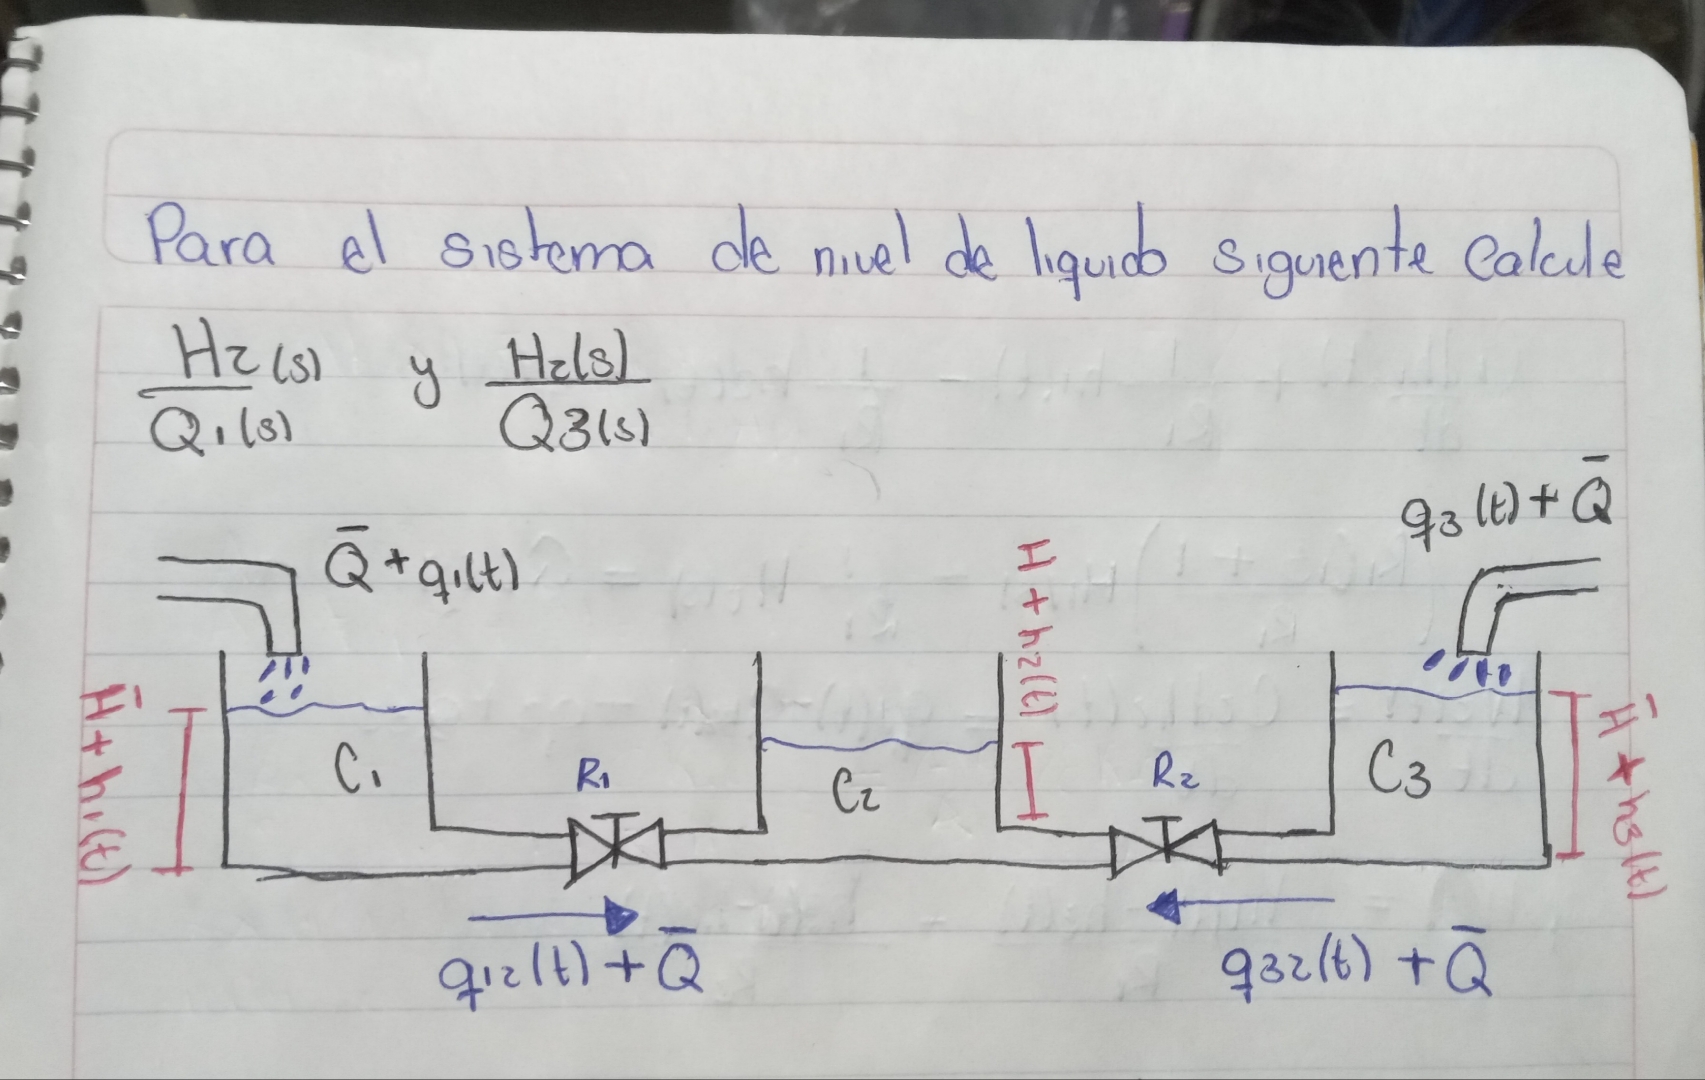 Para el sistema de nivel de liquido siguiente Calcule
H2(s)/Q1(s) y H2(s)/Q3(s)
q3(t) + Q̄
Q̄ + q1(t)
H + h2(t)
H̄ + h1(t)
C1
R1
C2
R2
C3
H̄ + h3(t)
q12(t) + Q̄
q32(t) + Q̄